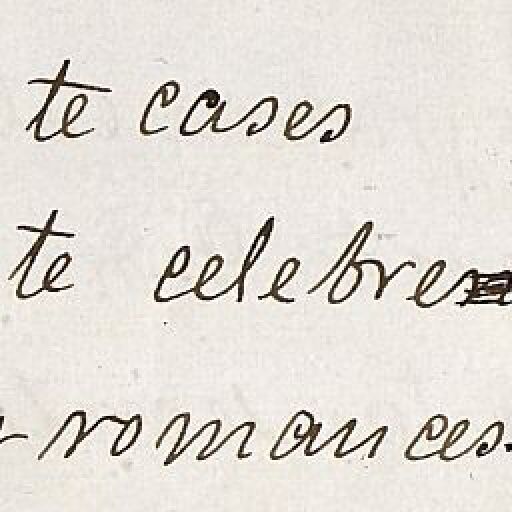 te cases
te celebren
romances.